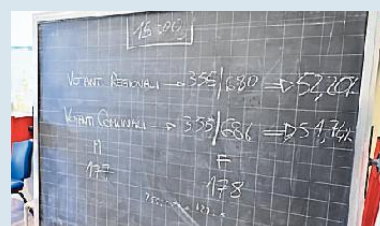 15:00
VOTANTI REGIONALI → 355/680 ⇒ 52,20%
VOTANTI COMUNALI → 355/686 ⇒ 51,74%
M F
177 178